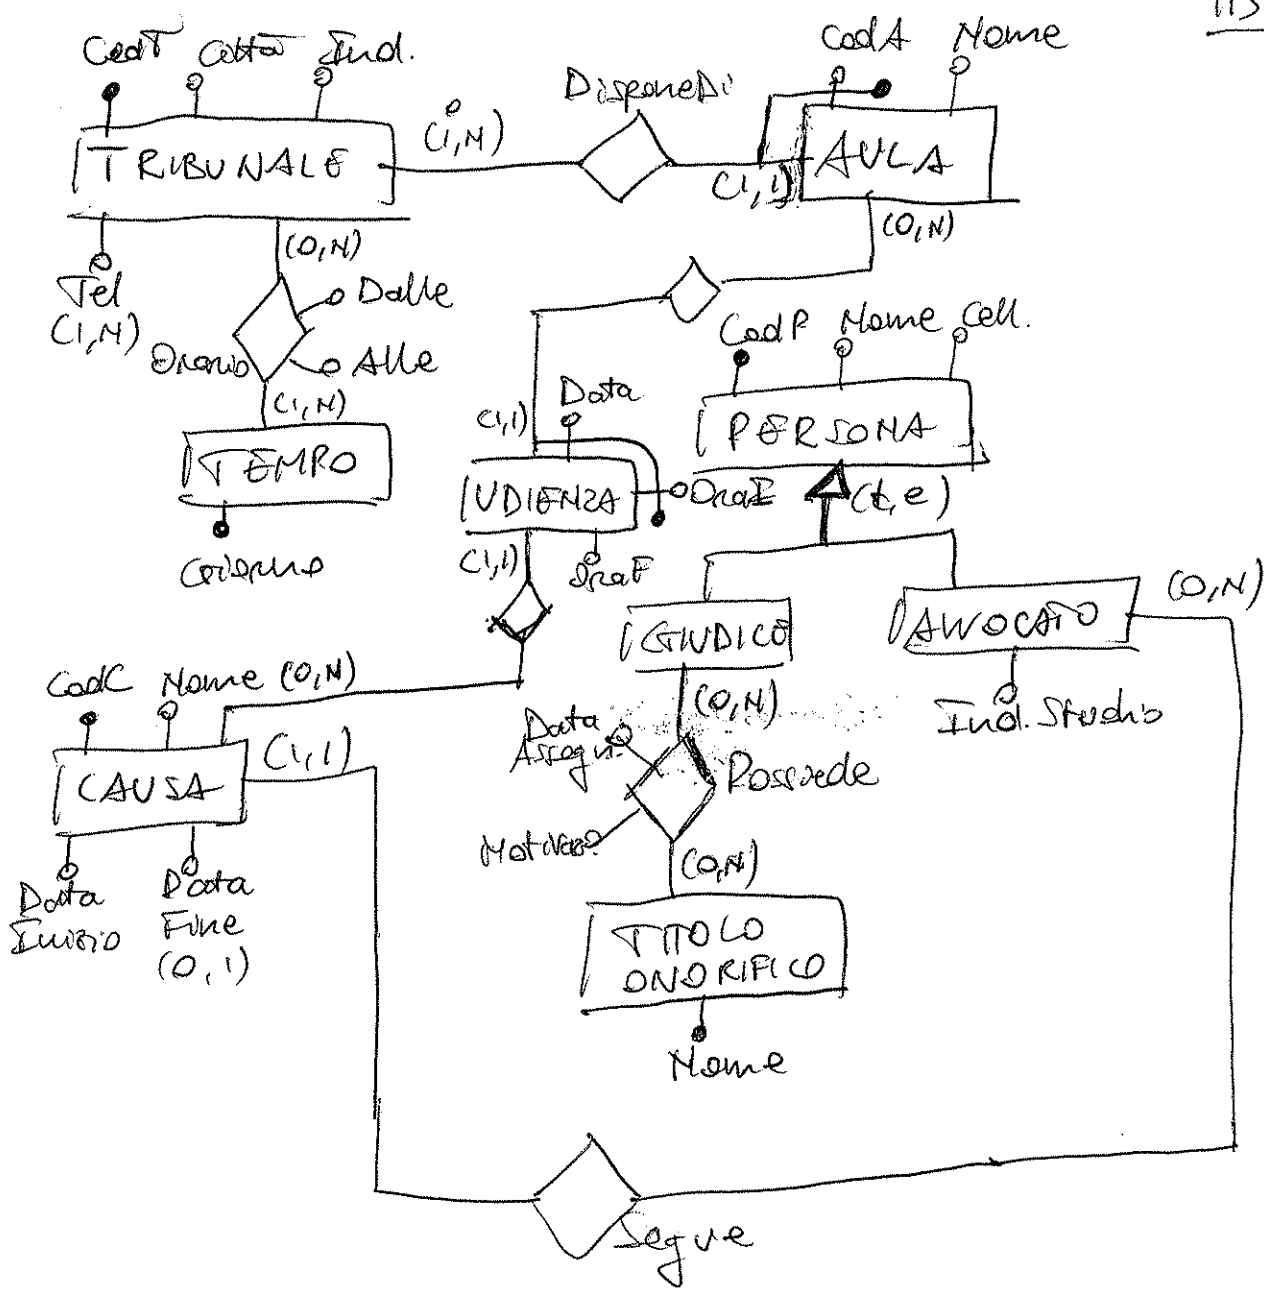 CodT Città Ind.
CodA Nome
DisponeDi
(1,N)
TRIBUNALE
AULA
(1,1)
(0,N)
(0,N)
Tel
(1,N)
Dalle
Orario
Alle
(1,N)
TEMPO
Giorno
CodP Nome Cell.
PERSONA
(t,e)
Data
(1,1)
UDIENZA
OraI
(1,1)
OraF
GIUDICE
AVVOCATO
(0,N)
Ind. Studio
CodC Nome (0,N)
CAUSA
(1,1)
Data
Inizio
Data
Fine
(0,1)
(0,N)
Data
Assegn.
Possiede
(0,N)
TITOLO
ONORIFICO
Nome
Segue